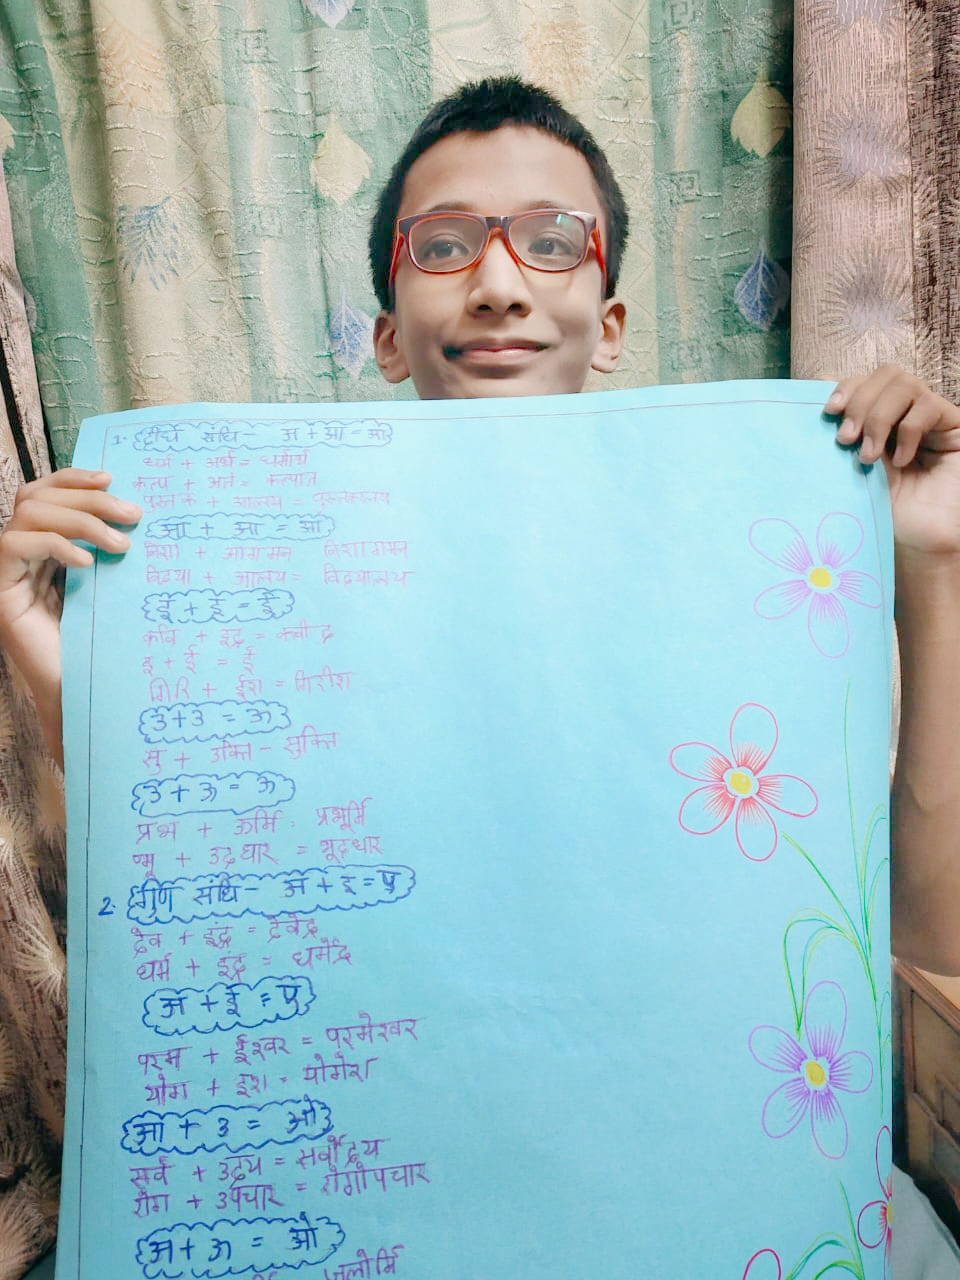 1. दीर्घ संधि - अ + आ = आ
धर्म + अर्थ = धर्मार्थ
कल्प + अंत = कल्पांत
पुस्तक + आलय = पुस्तकालय
आ + आ = आ
निशा + आगमन निशागमन
विद्या + आलय = विद्यालय
इ + इ = ई
कवि + इंद्र = कवींद्र
इ + ई = ई
गिरि + ईश = गिरीश
उ + उ = ऊ
सु + उक्ति - सुक्ति
उ + ऊ = ऊ
प्रभ + ऊर्मि = प्रभूर्मि
भू + उद्धार = भूद्धार
2. गुण संधि - अ + इ = ए
देव + इंद्र = देवेंद्र
धर्म + इंद्र = धर्मेंद्र
अ + ई = ए
परम + ईश्वर = परमेश्वर
योग + इश = योगेश
आ + उ = ओ
सर्व + उदय = सर्वोदय
रोग + उपचार = रोगोपचार
अ + ऊ = ओ
जलोर्मि